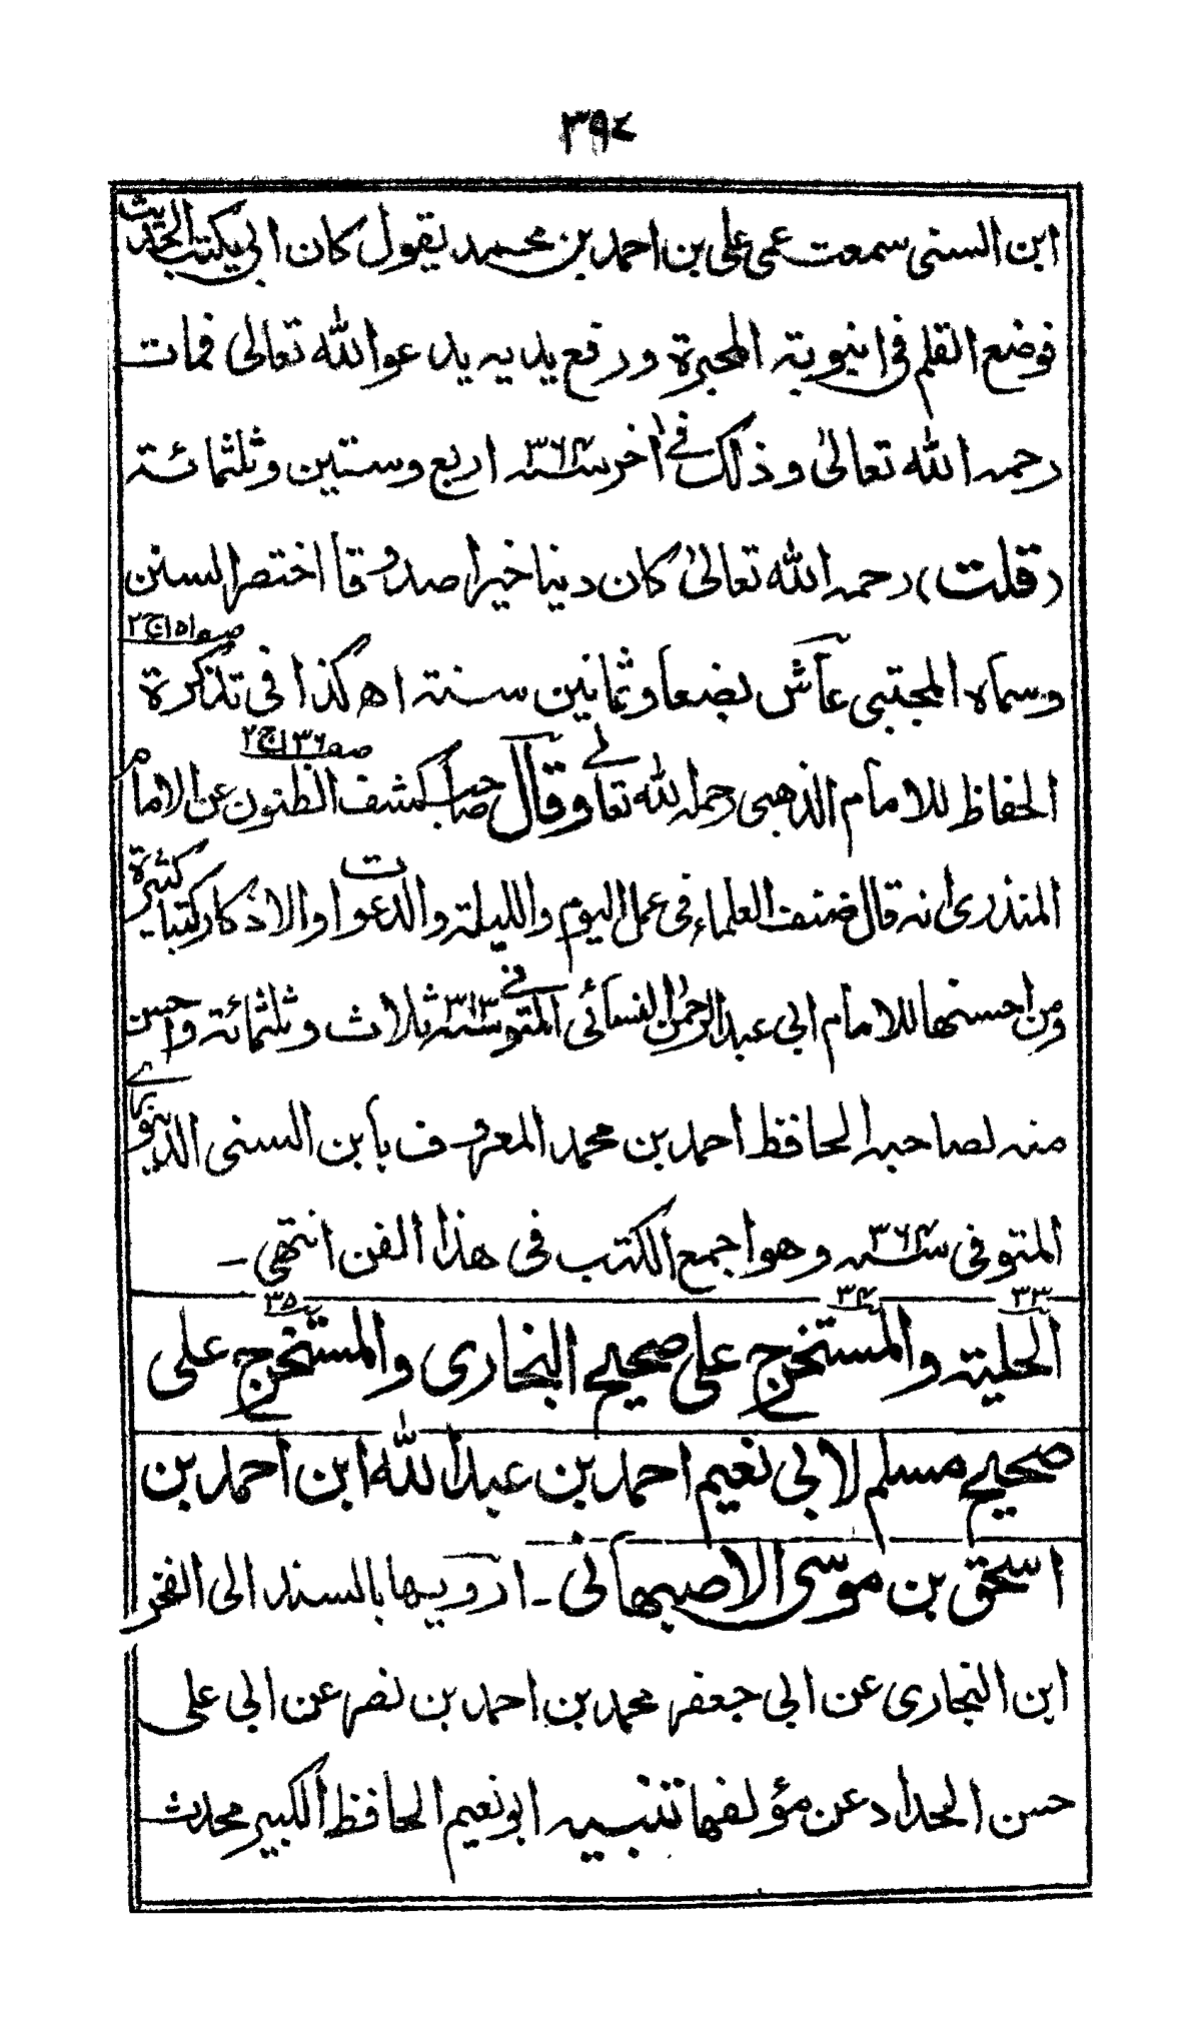 ٣٩٤
ابن السنى سمعت عمى على بن احمد بن محمد يقول كان ابى يكتب الحديث
فوضع القلم فى انبوبة المحبرة ورفع يديه يدعو الله تعالى فمات
رحمه الله تعالىٰ وذلك فى اٰخر سنه ٣٦٤ اربع وستين وثلثمائة
(قلت) رحمه الله تعالىٰ كان دينا خيرا صدوقا اختصر السنن
وسماه المجتبى عاش بضعا وثمانين سنة اه كذا فى تذكرة صه ١٥١ج٢
الحفاظ للامام الذهبى رحمه الله تعالے وقال صاحب كشف الظنون عن الامام صه ١٣٦ج٢
المنذرى انه قال صنف العلماء فى عمل اليوم والليلة والدعوات والاذكار كتبا كثيرة
ومن احسنها للامام ابى عبد الرحمٰن النسائى المتوفے سنه ٣١٣ ثلاث وثلثمائة واحسن
منه لصاحبه الحافظ احمد بن محمد المعروف بابن السنى الدينورے
المتوفى سنه ٣٦٤ وهو اجمع الكتب فى هذا الفن انتهى ـ
٣٣ الحلية ٣٤ والمستخرج على صحيح البخارى ٣٥ والمستخرج على
صحيح مسلم لابى نعيم احمد بن عبد الله ابن احمد بن
اسحق بن موسى الاصبهانى ـ ارويها بالسند الى الفخر
ابن البخارى عن ابى جعفر محمد بن احمد بن نصر عن ابى على
حسن الحداد عن مؤلفها تنبيه ابو نعيم الحافظ الكبير محدث